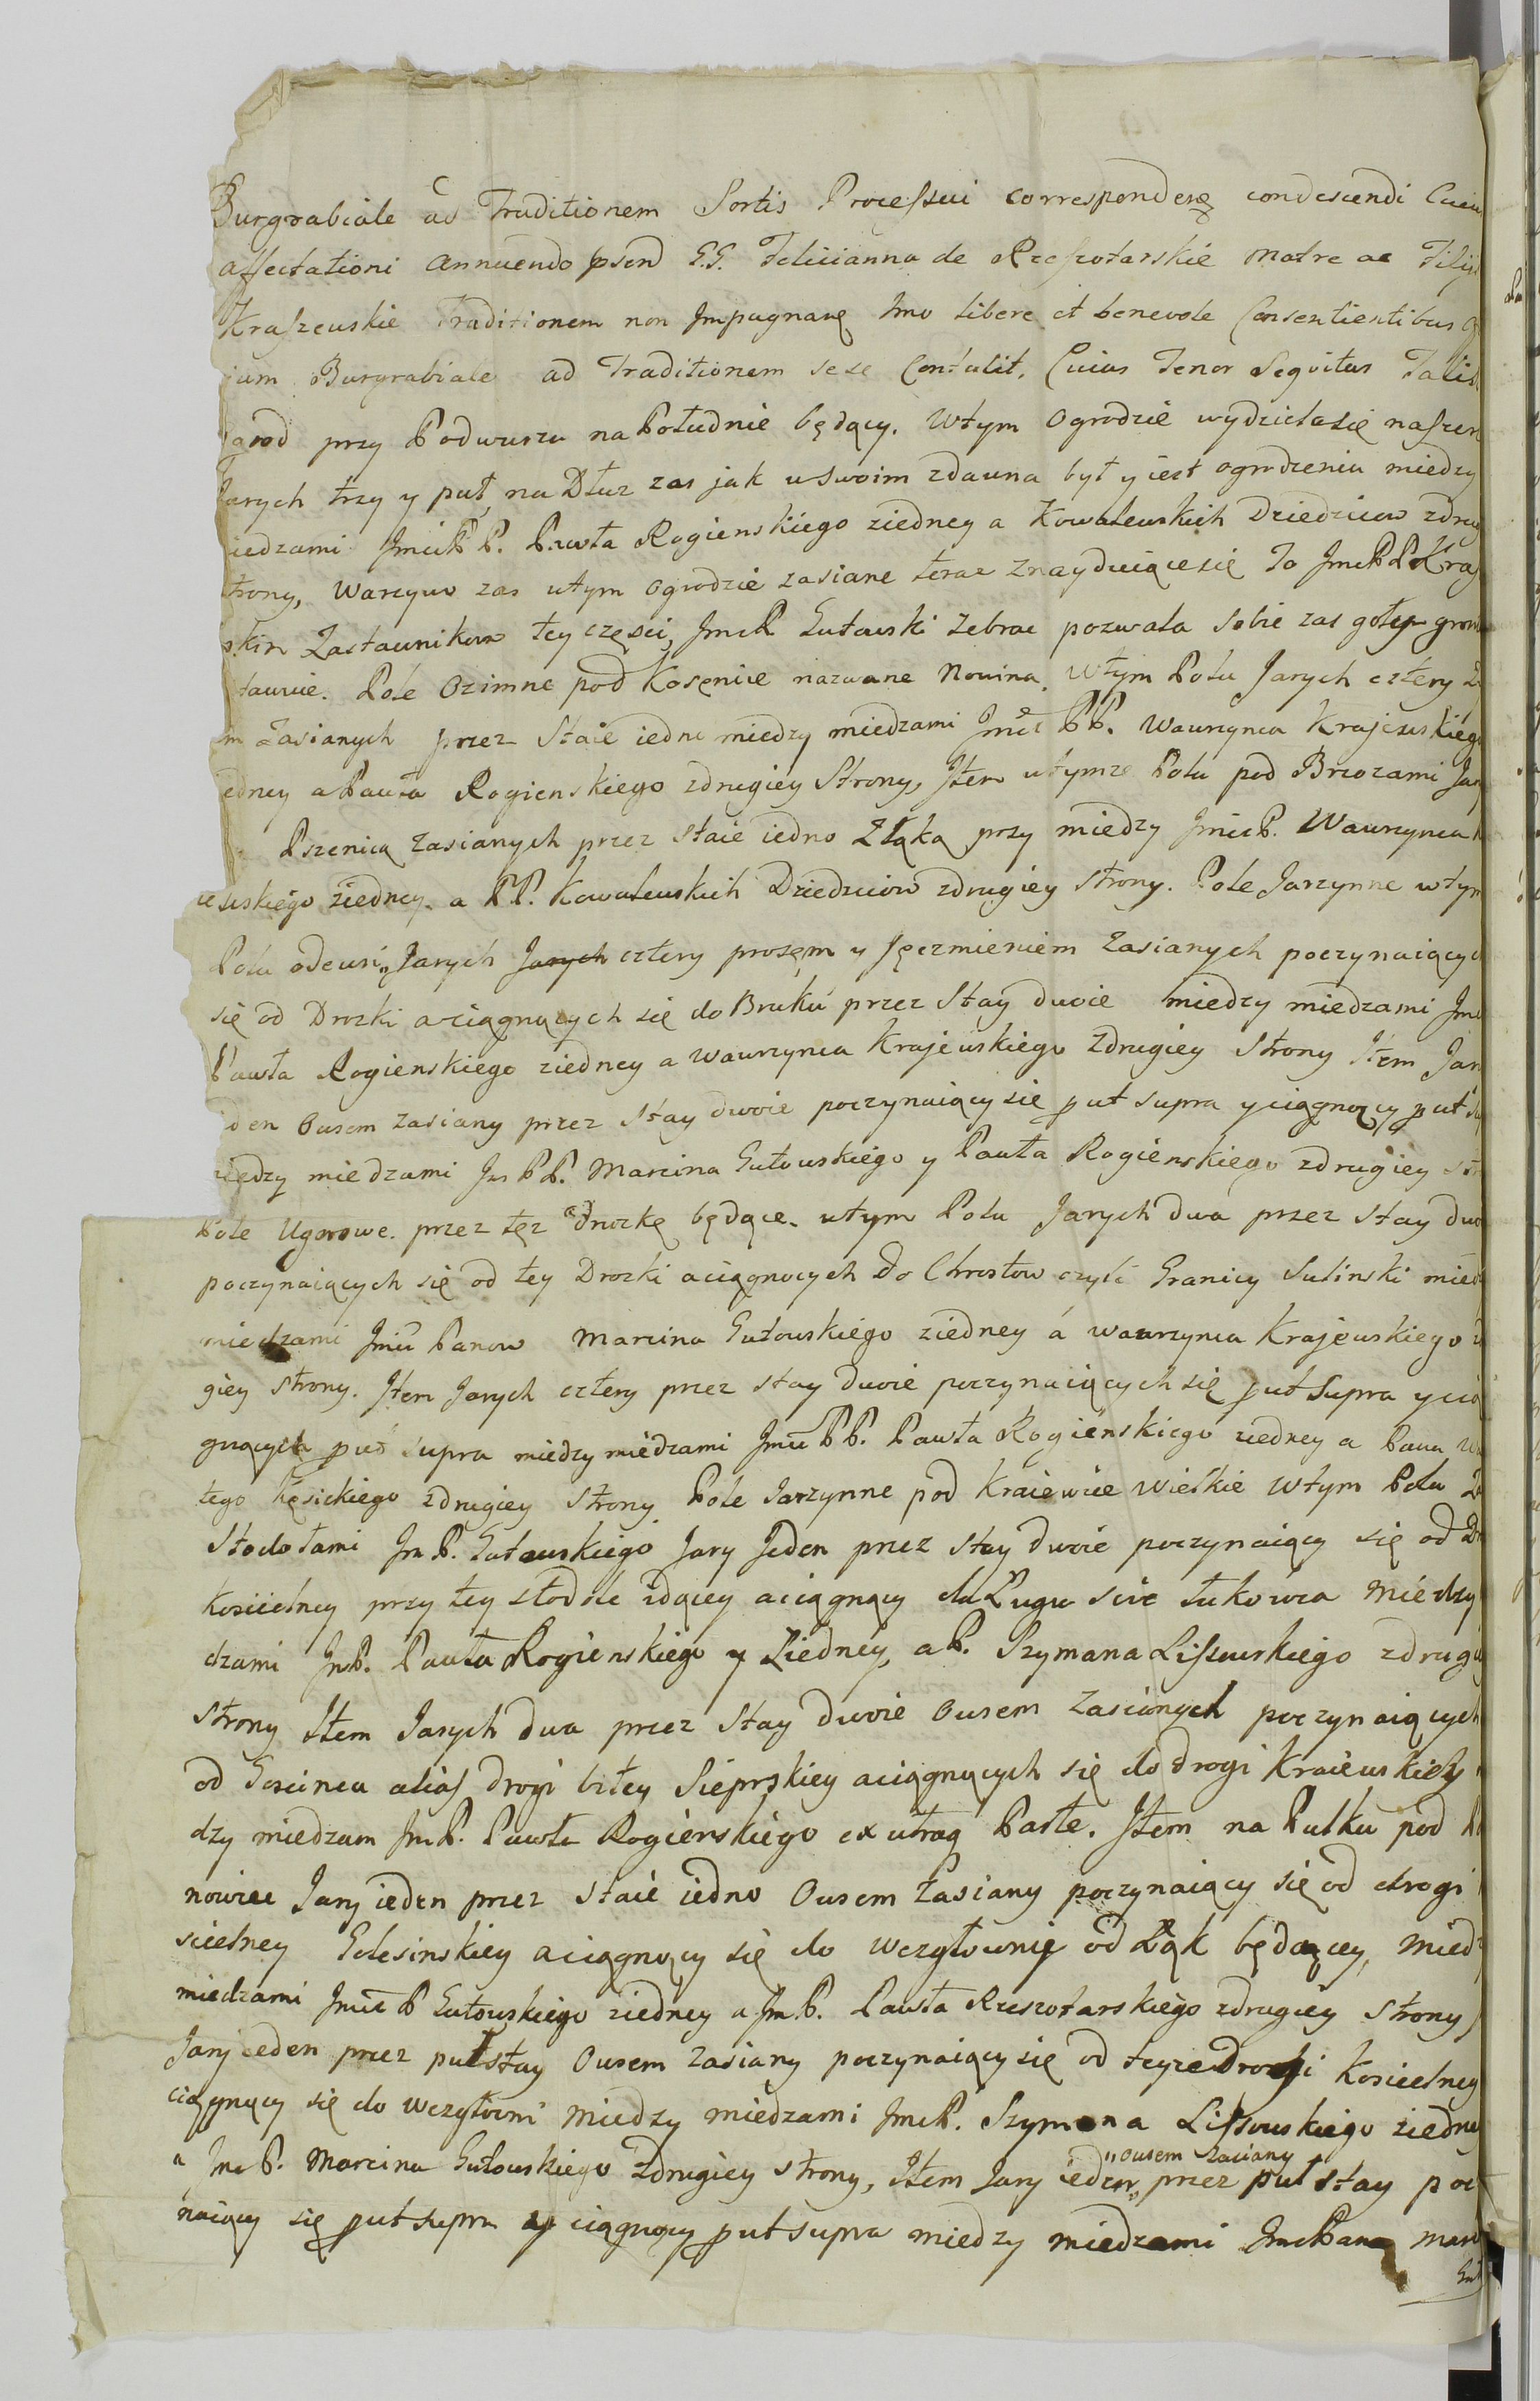 Burgrabiale ad Traditionem Sortis Processui correspondenę condescendi Cuiu
affectationi annuendo psen G.G. Felicianna de Rzeszotarskie Matre ac Filijs
Kraszewskie Traditionem non Jmpugnanę Jmo libere et benevole Consentientibus
jum Burgrabiale ad Traditionem sese Contulit. Cuius Tenor Seqvitur Talis
grod przy Podwurzu na Południe będący. Wtym Ogrodzie wydzielasię naszer
Jarych trzy y puł, na Dłuz zas jak wswoim zdawna był y jest ogrodzeniu miedzy
iedzami JmciP P. Pawła Rogienskiego ziedney a Kowalewskich Dziedzicow zdrug
trony, Warzywo zas wtym ogrodzie zasiane teraz Znayduiącesię To JmcPP Kra
skim Zastawnikom tey częsci, JmcP Gutowski Zebrac pozwala Sobie zas goły gron
tawuie. Pole Ozimne pod Kosęnice nazwane Nowina. Wtym Polu Jarych cztery
m Zasianych przez Staie iedno miedzy miedzami Jmcć PP. Wawrzynca Krajewskiego
iedney a Pawła Rogienskiego zdrugiey Strony, Jtem wtymze Polu pod Brzozami Jar
Pszenicą zasianych przez staie iedno Złąką przy miedzy JmciP. Wawrzynca
iewskiego ziedney. a PP. Kowalewskich Dziedzicow zdrugiey strony. Pole Jarzynne wtym
Polu odewsi,, Jarych Jarych cztery prosęm y Jęczmieniem Zasianych poczynaiących
się od Drozki aciągnących się do Bruku przez Stay dwoie miedzy miedzami Jmc
Pawła Rogienskiego ziedney a Wawrzynca Krajewskiego Zdrugiey Strony Jtem Jar
ieden Owsem zasiany przez Stay dwoie poczynaiący się put supra y ciągnący put su
iedzy miedzami Jm PP. Marcina Gutowskiego y Pawła Rogienskiego zdrugiey str
Pole Ugorowe. przez tęz Drozkę będące. wtym Polu Jarych dwa przez stay dwo
poczynaiących się od tey Drozki aciągnocych do Chrostow czyli Granicy Sulinski mied
miedzami Jmci Panow Marcina Gutowskiego ziedney á wawrzynca Krajewskiego
giey strony. Jtem Jarych cztery przez stay dwoie poczynaiących się put Supra y cią
gnących put supra miedzy miedzami Jmci PP. Pawła Rogienskiego ziedney a Pawa
tego Kęsickiego zdrugiey Strony Pole Jarzynne pod Kraiewice Wielkie Wtym Polu
Stodołami Jm P. Gutowskiego Jary Jeden przez stay dwoie poczynaiący się od
Koscielney przy tey stodole idącey aciągnący do Ługu sive Łukowca Miedzy
dzami JmP. Pawła Rogienskiego y Ziedney, a P. Szymana Lissowskiego zdrugi
strony Jtem Jarych dwa przez stay dwoie Owsem Zasianych poczynaiących
od Goscinca alias drogi bitey Sieprskiey aciągnących się do drogi Kraiewskiey
dzy miedzam JmP. Pawła Rogienskiego ex utraq Parte. Jtem na Pulku pod
nowiec Jary ieden przez staie iedno Owsem Zasiany poczynaiący się od drogi
scielney Golesinskiey aciągnący się do Wezgłownie od Łąk będącey, Miedz
miedzami Jmci P Gutowskiego ziedney a JmP. Pawła Rzeszotarskiego zdrugiey Strony,
Jary ieden przez puł stay Owsem Zasiany poczynaiący się od teyze Drozki Koscielney
ciągnący się do Wezgłowni Miedzy miedzami JmcP. Szymona Lissowskiego ziedney
a Jmc P. Marcina Gutowskiego Zdrugiey strony, Jtem Jary ieden,, przez puł stay poc
,,owsem zasiany
naiący się put supra y ciągnący put supra miedzy miedzami JmcPana Marc
Gut